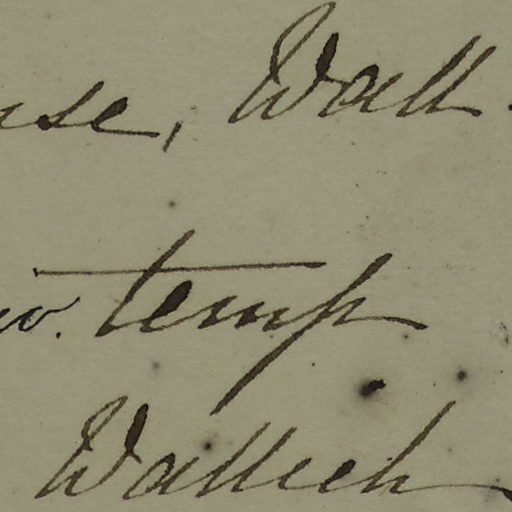 ase, Wall
w. temp
Wallich